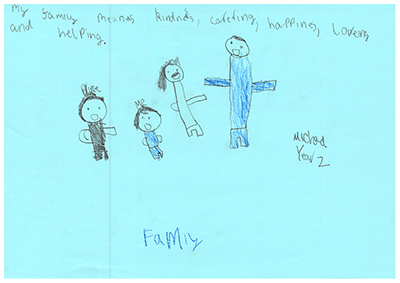 My family means kindnes, careting, happines, Lovers
and helping.
Me
Michael
Year 2
Famiy